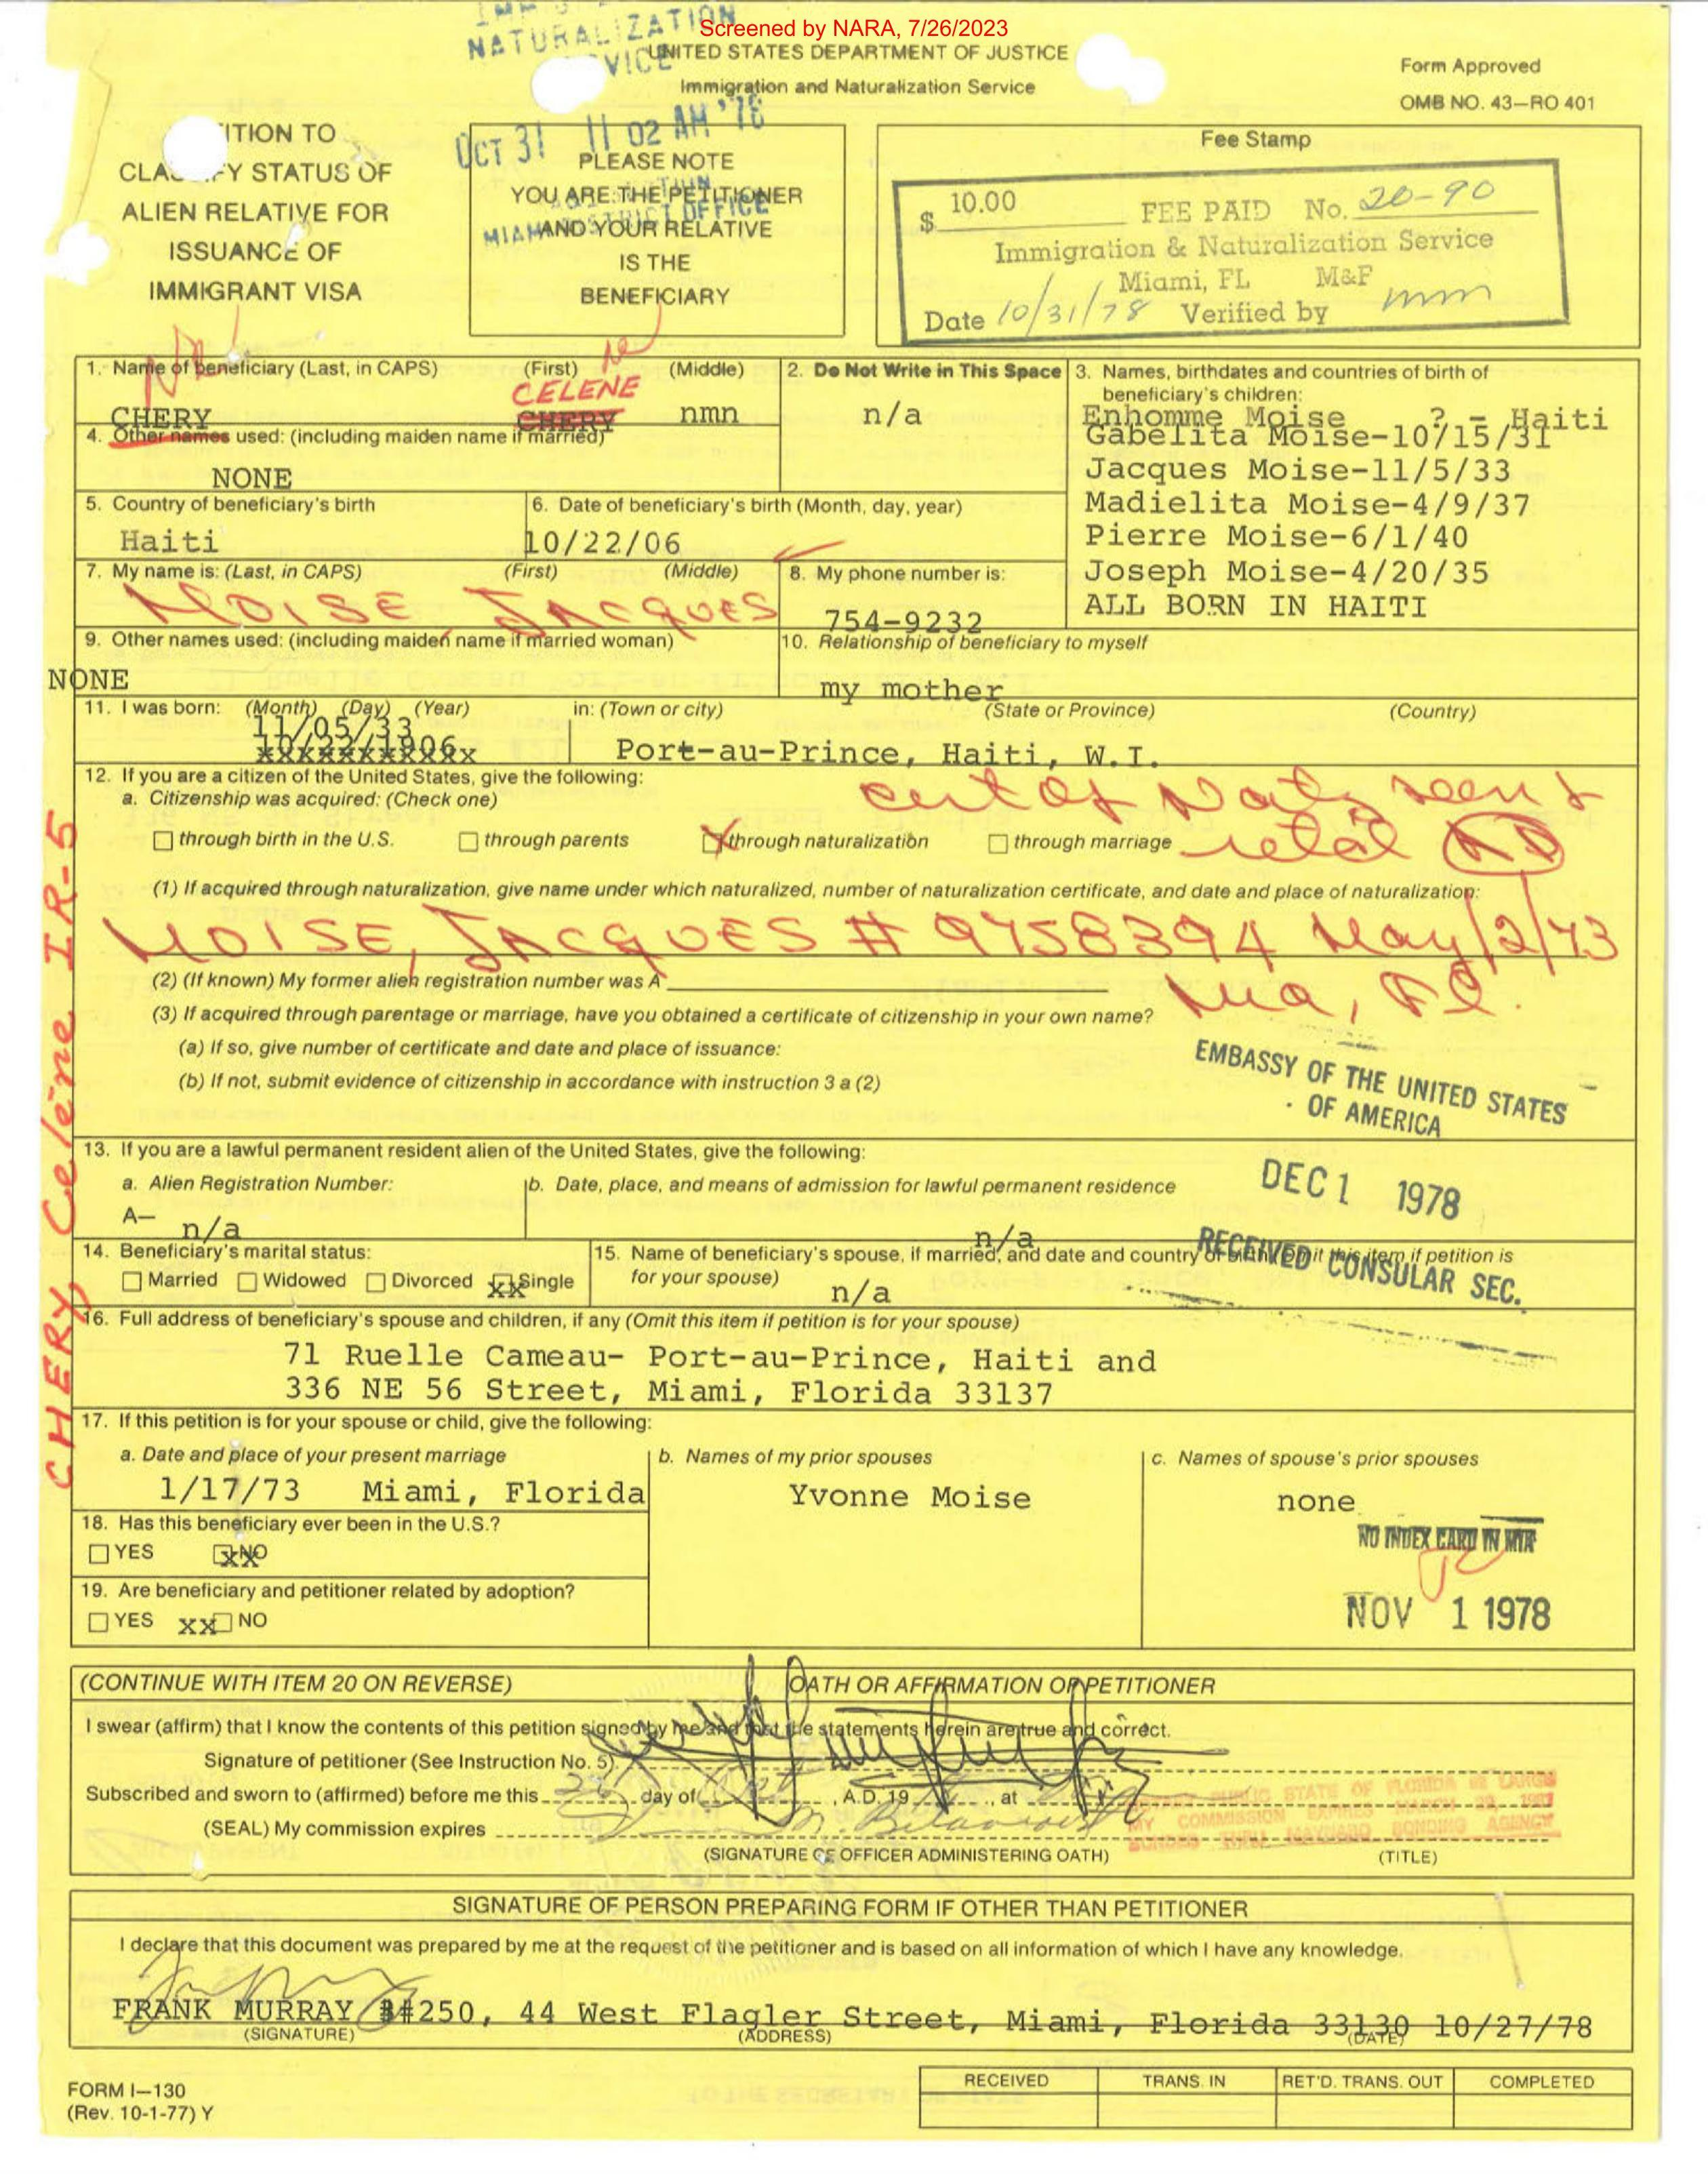 Screened by NARA, 7/26/2023
NATURALIZATION
UNITED STATES DEPARTMENT OF JUSTICE
Immigration and Naturalization Service
Form Approved
OMB NO. 43—RO 401
OCT 31 11 02 AM '78
MIAMI DISTRICT OFFICE
ITION TO
CLA FY STATUS OF
ALIEN RELATIVE FOR
ISSUANCE OF
IMMIGRANT VISA
PLEASE NOTE
YOU ARE THE PETITIONER
AND YOUR RELATIVE
IS THE
BENEFICIARY
Fee Stamp
$ 10.00 FEE PAID No. 20-90
Immigration & Naturalization Service
Miami, FL M&F
Date 10/31/78 Verified by mm
1. Name of beneficiary (Last, in CAPS) (First) (Middle)
CELENE
CHERY CHERY nmn
2. Do Not Write in This Space
n/a
3. Names, birthdates and countries of birth of
beneficiary's children:
Enhomme Moise ? - Haiti
Gabelita Moise-10/15/31
Jacques Moise-11/5/33
Madielita Moise-4/9/37
Pierre Moise-6/1/40
Joseph Moise-4/20/35
ALL BORN IN HAITI
4. Other names used: (including maiden name if married)
NONE
5. Country of beneficiary's birth
Haiti
6. Date of beneficiary's birth (Month, day, year)
10/22/06
7. My name is: (Last, in CAPS) (First) (Middle)
MOISE JACQUES
8. My phone number is:
754-9232
9. Other names used: (including maiden name if married woman)
NONE
10. Relationship of beneficiary to myself
my mother
11. I was born: (Month) (Day) (Year) in: (Town or city) (State or Province) (Country)
11/05/33
10/22/1906
Port-au-Prince, Haiti, W.I.
12. If you are a citizen of the United States, give the following:
a. Citizenship was acquired: (Check one)
through birth in the U.S. through parents X through naturalization through marriage
Cert of Natz seen &
retd
(1) If acquired through naturalization, give name under which naturalized, number of naturalization certificate, and date and place of naturalization:
MOISE, JACQUES # 9758394 May/2/73
Mia, Fl.
(2) (If known) My former alien registration number was A
(3) If acquired through parentage or marriage, have you obtained a certificate of citizenship in your own name?
(a) If so, give number of certificate and date and place of issuance:
(b) If not, submit evidence of citizenship in accordance with instruction 3 a (2)
EMBASSY OF THE UNITED STATES
OF AMERICA
DEC 1 1978
RECEIVED CONSULAR SEC.
13. If you are a lawful permanent resident alien of the United States, give the following:
a. Alien Registration Number:
A— n/a
b. Date, place, and means of admission for lawful permanent residence
n/a
14. Beneficiary's marital status:
Married Widowed Divorced xx Single
15. Name of beneficiary's spouse, if married, and date and country of birth (omit this item if petition is
for your spouse)
n/a
16. Full address of beneficiary's spouse and children, if any (Omit this item if petition is for your spouse)
71 Ruelle Cameau- Port-au-Prince, Haiti and
336 NE 56 Street, Miami, Florida 33137
17. If this petition is for your spouse or child, give the following:
a. Date and place of your present marriage
1/17/73 Miami, Florida
b. Names of my prior spouses
Yvonne Moise
c. Names of spouse's prior spouses
none
NO INDEX CARD IN MIA
NOV 1 1978
18. Has this beneficiary ever been in the U.S.?
YES xx NO
19. Are beneficiary and petitioner related by adoption?
YES xx NO
CHERY, Celène IR-5
(CONTINUE WITH ITEM 20 ON REVERSE) OATH OR AFFIRMATION OF PETITIONER
I swear (affirm) that I know the contents of this petition signed by me and that the statements herein are true and correct.
Signature of petitioner (See Instruction No. 5)
Subscribed and sworn to (affirmed) before me this day of , A.D. 19 , at
NOTARY PUBLIC STATE OF FLORIDA at LARGE
MY COMMISSION EXPIRES MARCH
BONDED THRU MAYNARD BONDING AGENCY
(SEAL) My commission expires
(SIGNATURE OF OFFICER ADMINISTERING OATH) (TITLE)
SIGNATURE OF PERSON PREPARING FORM IF OTHER THAN PETITIONER
I declare that this document was prepared by me at the request of the petitioner and is based on all information of which I have any knowledge.
FRANK MURRAY #250, 44 West Flagler Street, Miami, Florida 33130 10/27/78
(SIGNATURE) (ADDRESS) (DATE)
FORM I—130
(Rev. 10-1-77) Y
RECEIVED TRANS. IN RET'D. TRANS. OUT COMPLETED